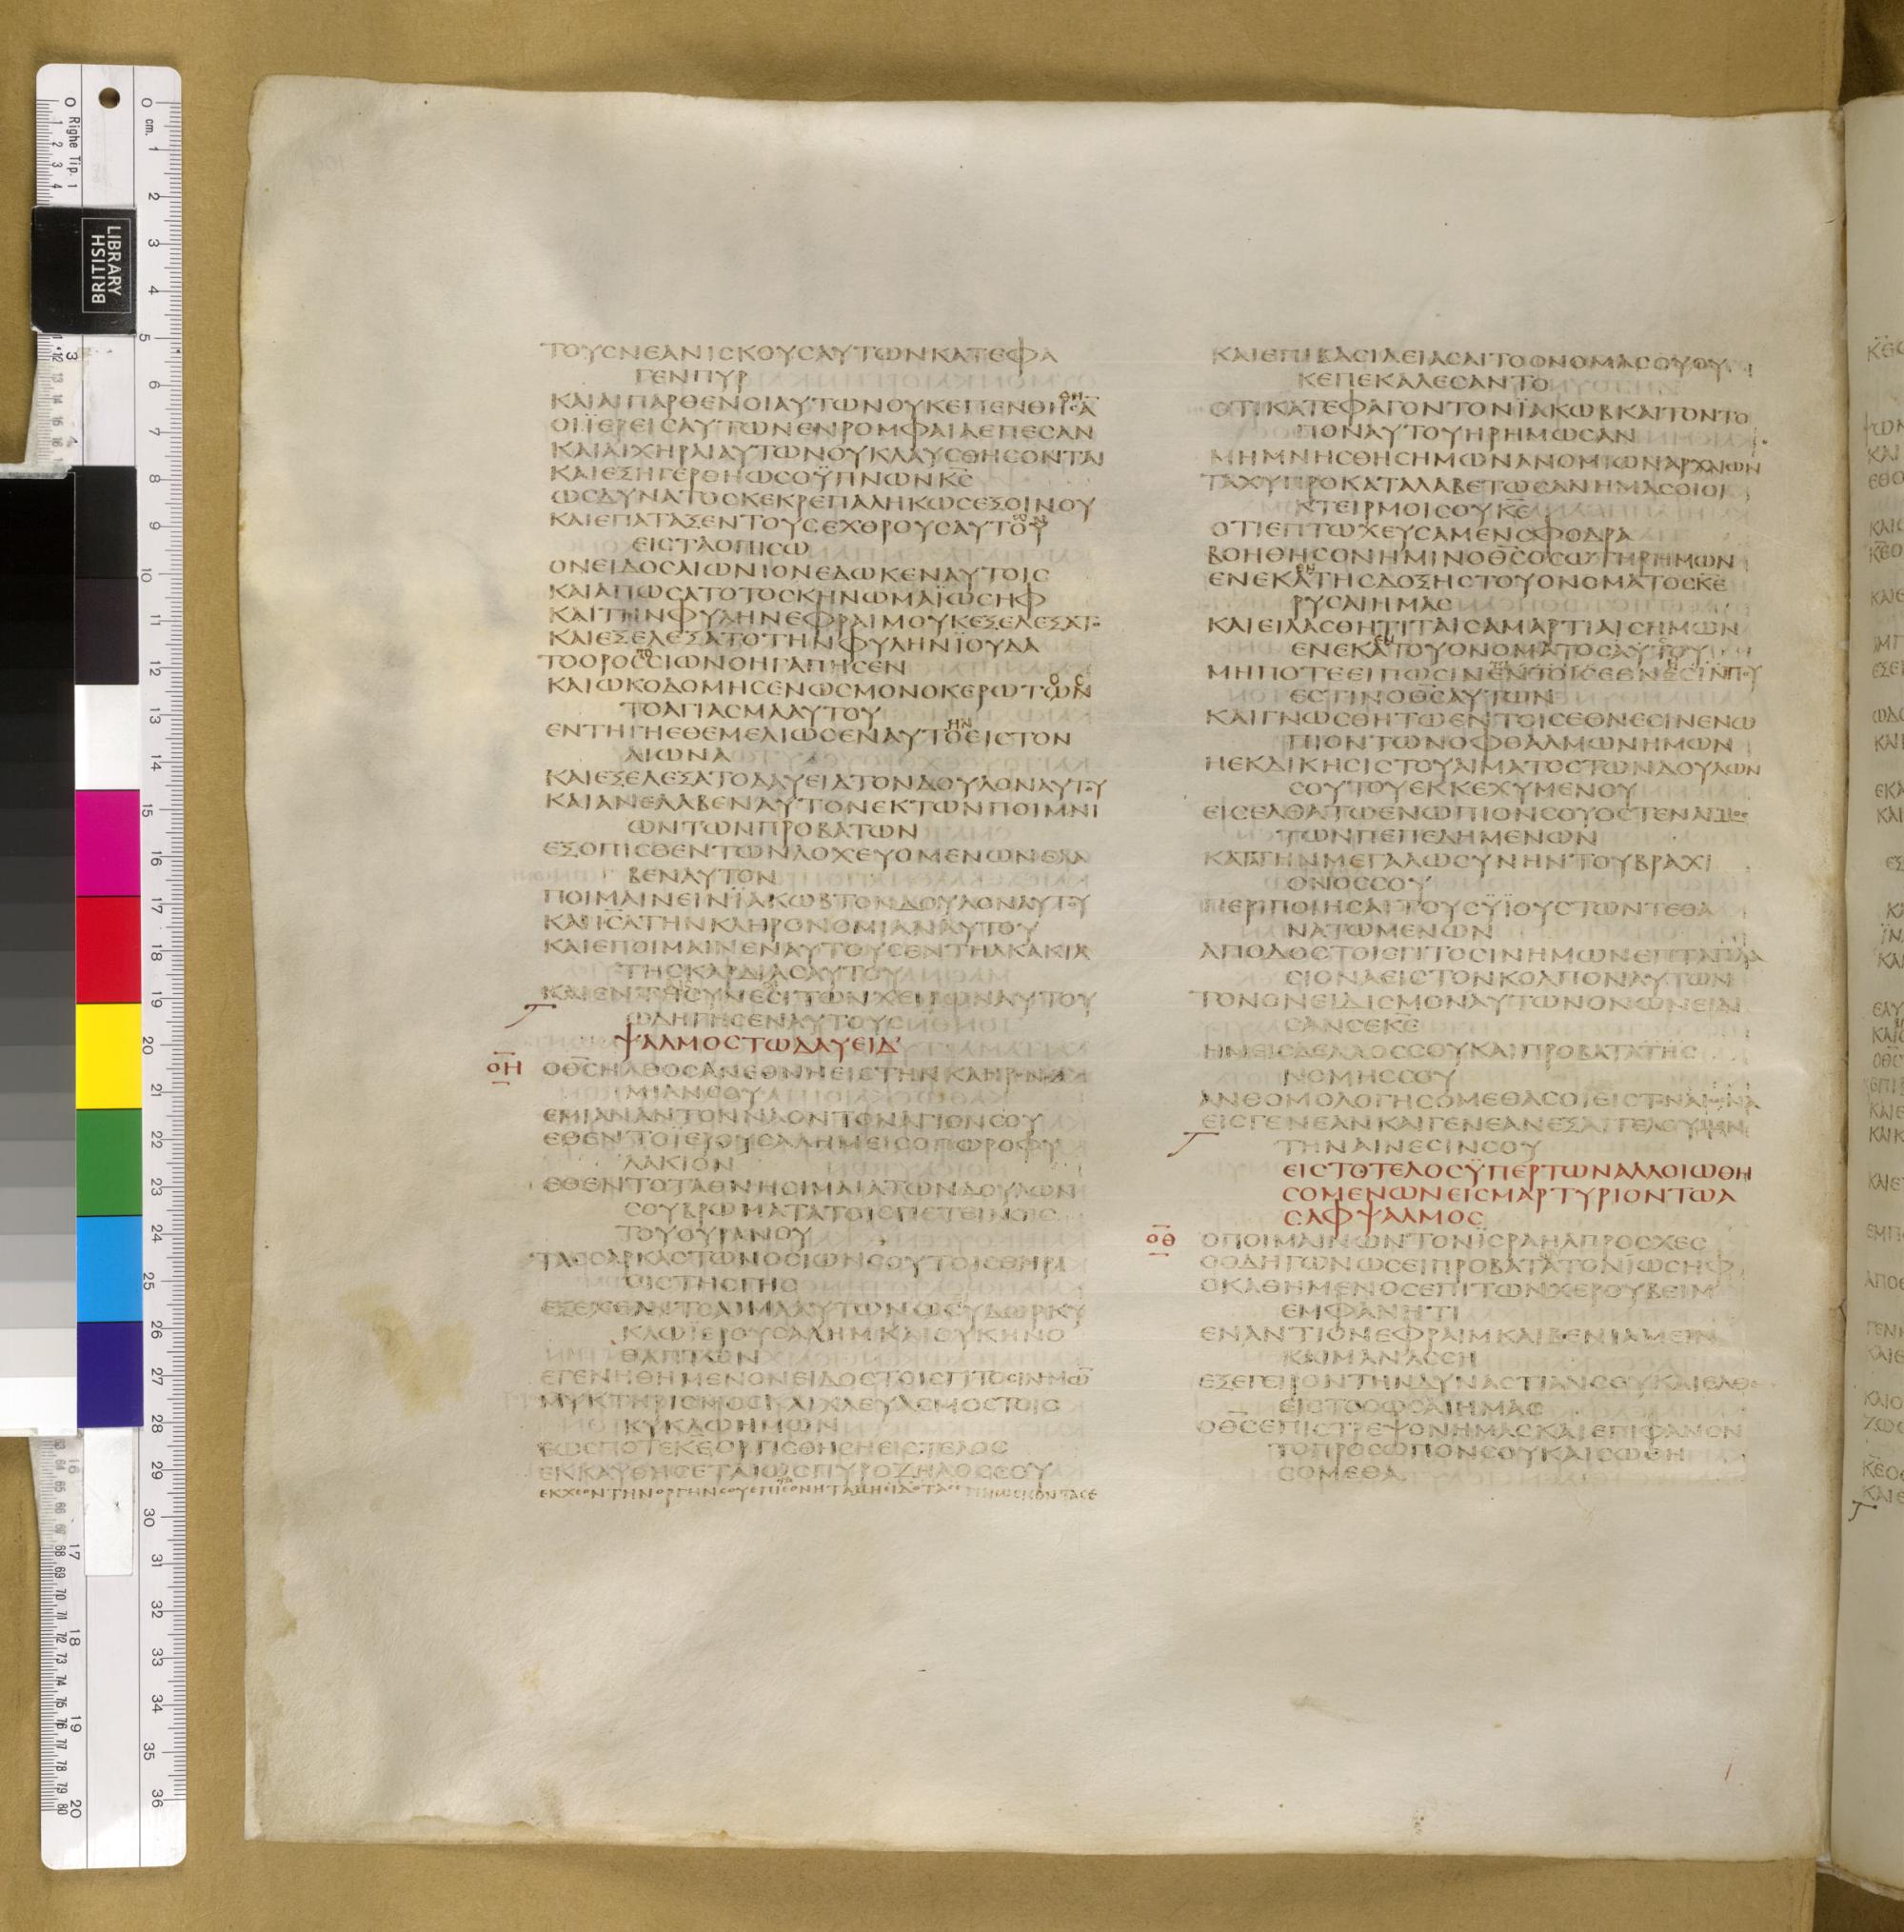 ΤΟΥϹΝΕΑΝΙϹΚΟΥϹΑΥΤΩΝΚΑΤΕΦΑ
ΓΕΝΠΥΡ
ΚΑΙΑΙΠΑΡΘΕΝΟΙΑΥΤΩΝΟΥΚΕΠΕΝΘΗ
ΟΙΪΕΡΕΙϹΑΥΤΩΝΕΝΡΟΜΦΑΙΑΕΠΕϹΑΝ
ΚΑΙΑΙΧΗΡΑΙΑΥΤΩΝΟΥΚΛΑΥϹΘΗϹΟΝΤΑΙ
ΚΑΙΕΞΗΓΕΡΘΗΩϹΟΫΠΝΩΝΚϹ
ΩϹΔΥΝΑΤΟϹΚΕΚΡΕΠΑΛΗΚΩϹΕΞΟΙΝΟΥ
ΚΑΙΕΠΑΤΑΞΕΝΤΟΥϹΕΧΘΡΟΥϹΑΥΤΟΥ
ΕΙϹΤΑΟΠΙϹΩ
ΟΝΕΙΔΟϹΑΙΩΝΙΟΝΕΔΩΚΕΝΑΥΤΟΙϹ
ΚΑΙΑΠΩϹΑΤΟΤΟϹΚΗΝΩΜΑΪΩϹΗΦ
ΚΑΙΤΗΝΦΥΛΗΝΕΦΡΑΙΜΟΥΚΕΞΕΛΕΞΑΤΟ
ΚΑΙΕΞΕΛΕΞΑΤΟΤΗΝΦΥΛΗΝΪΟΥΔΑ
ΤΟΟΡΟϹϹΙΩΝΟΗΓΑΠΗϹΕΝ
ΚΑΙΩΚΟΔΟΜΗϹΕΝΩϹΜΟΝΟΚΕΡΩΤΩΝ
ΤΟΑΓΙΑϹΜΑΑΥΤΟΥ
ΕΝΤΗΓΗΕΘΕΜΕΛΙΩϹΕΝΑΥΤΟΕΙϹΤΟΝ
ΑΙΩΝΑ
ΚΑΙΕΞΕΛΕΞΑΤΟΔΑΥΕΙΔΤΟΝΔΟΥΛΟΝΑΥΤΟΥ
ΚΑΙΑΝΕΛΑΒΕΝΑΥΤΟΝΕΚΤΩΝΠΟΙΜΝΙ
ΩΝΤΩΝΠΡΟΒΑΤΩΝ
ΕΞΟΠΙϹΘΕΝΤΩΝΛΟΧΕΥΟΜΕΝΩΝΕΛΑ
ΒΕΝΑΥΤΟΝ
ΠΟΙΜΑΙΝΕΙΝΪΑΚΩΒΤΟΝΔΟΥΛΟΝΑΥΤΟΥ
ΚΑΙΙϹΑΤΗΝΚΛΗΡΟΝΟΜΙΑΝΑΥΤΟΥ
ΚΑΙΕΠΟΙΜΑΙΝΕΝΑΥΤΟΥϹΕΝΤΗΑΚΑΚΙΑ
ΤΗϹΚΑΡΔΙΑϹΑΥΤΟΥ
ΚΑΙΕΝΤΗϹΥΝΕϹΙΤΩΝΧΕΙΡΩΝΑΥΤΟΥ
ΩΔΗΓΗϹΕΝΑΥΤΟΥϹ
ΨΑΛΜΟϹΤΩΔΑΥΕΙΔ
ΟΗ ΟΘϹΗΛΘΟϹΑΝΕΘΝΗΕΙϹΤΗΝΚΛΗΡΟΝΟ
ΜΙΑΝϹΟΥ
ΕΜΙΑΝΑΝΤΟΝΝΑΟΝΤΟΝΑΓΙΟΝϹΟΥ
ΕΘΕΝΤΟΪΕΡΟΥϹΑΛΗΜΕΙϹΟΠΩΡΟΦΥ
ΛΑΚΙΟΝ
ΕΘΕΝΤΟΤΑΘΝΗϹΙΜΑΙΑΤΩΝΔΟΥΛΩΝ
ϹΟΥΒΡΩΜΑΤΑΤΟΙϹΠΕΤΕΙΝΟΙϹ
ΤΟΥΟΥΡΑΝΟΥ
ΤΑϹϹΑΡΚΑϹΤΩΝΟϹΙΩΝϹΟΥΤΟΙϹΘΗΡΙ
ΟΙϹΤΗϹΓΗϹ
ΕΞΕΧΕΑΝΤΟΑΙΜΑΑΥΤΩΝΩϹΥΔΩΡΚΥ
ΚΛΩΪΕΡΟΥϹΑΛΗΜΚΑΙΟΥΚΗΝΟ
ΘΑΠΤΩΝ
ΕΓΕΝΗΘΗΜΕΝΟΝΕΙΔΟϹΤΟΙϹΓΙΤΟϹΙΝΗΜΩ
ΜΥΚΤΗΡΙϹΜΟϹΚΑΙΧΛΕΥΑϹΜΟϹΤΟΙϹ
ΚΥΚΛΩΗΜΩΝ
ΕΩϹΠΟΤΕΚΕΟΡΓΙϹΘΗϹΗΕΙϹΤΕΛΟϹ
ΕΚΚΑΥΘΗϹΕΤΑΙΩϹΠΥΡΟΖΗΛΟϹϹΟΥ
ΕΚΧΕΟΝΤΗΝΟΡΓΗΝϹΟΥΕΠΙΕΘΝΗΤΑΜΗ
ΚΑΙΕΠΙΒΑϹΙΛΕΙΑϹΑΙΤΟΟΝΟΜΑϹΟΥΟΥ
ΚΕΠΕΚΑΛΕϹΑΝΤΟ
ΟΤΙΚΑΤΕΦΑΓΟΝΤΟΝΪΑΚΩΒΚΑΙΤΟΝΤΟ
ΠΟΝΑΥΤΟΥΗΡΗΜΩϹΑΝ
ΜΗΜΝΗϹΘΗϹΗΜΩΝΑΝΟΜΙΩΝΑΡΧΑΙΩΝ
ΤΑΧΥΠΡΟΚΑΤΑΛΑΒΕΤΩϹΑΝΗΜΑϹΟΙΟΙ
ΚΤΕΙΡΜΟΙϹΟΥΚΕ
ΟΤΙΕΠΤΩΧΕΥϹΑΜΕΝϹΦΟΔΡΑ
ΒΟΗΘΗϹΟΝΗΜΙΝΟΘϹΟϹΩΤΗΡΗΜΩΝ
ΕΝΕΚΑΤΗϹΔΟΞΗϹΤΟΥΟΝΟΜΑΤΟϹΚΕ
ΡΥϹΑΙΗΜΑϹ
ΚΑΙΕΙΛΑϹΘΗΤΙΤΑΙϹΑΜΑΡΤΙΑΙϹΗΜΩΝ
ΕΝΕΚΑΤΟΥΟΝΟΜΑΤΟϹΑΥΤΟΥ
ΜΗΠΟΤΕΕΙΠΩϹΙΝΕΝΤΟΙϹΕΘΝΕϹΙΝΠΟΥ
ΕϹΤΙΝΟΘϹΑΥΤΩΝ
ΚΑΙΓΝΩϹΘΗΤΩΕΝΤΟΙϹΕΘΝΕϹΙΝΕΝΩ
ΠΙΟΝΤΩΝΟΦΘΑΛΜΩΝΗΜΩΝ
ΗΕΚΔΙΚΗϹΙϹΤΟΥΑΙΜΑΤΟϹΤΩΝΔΟΥΛΩΝ
ϹΟΥΤΟΥΕΚΚΕΧΥΜΕΝΟΥ
ΕΙϹΕΛΘΑΤΩΕΝΩΠΙΟΝϹΟΥΟϹΤΕΝΑΓΜΟϹ
ΤΩΝΠΕΠΕΔΗΜΕΝΩΝ
ΚΑΤΑΤΗΝΜΕΓΑΛΩϹΥΝΗΝΤΟΥΒΡΑΧΙ
ΟΝΟϹϹΟΥ
ΠΕΡΙΠΟΙΗϹΑΙΤΟΥϹΫΙΟΥϹΤΩΝΤΕΘΑ
ΝΑΤΩΜΕΝΩΝ
ΑΠΟΔΟϹΤΟΙϹΓΙΤΟϹΙΝΗΜΩΝΕΠΤΑΠΛΑ
ϹΙΟΝΑΕΙϹΤΟΝΚΟΛΠΟΝΑΥΤΩΝ
ΤΟΝΟΝΕΙΔΙϹΜΟΝΑΥΤΩΝΟΝΩΝΕΙΔΙ
ϹΑΝϹΕΚΕ
ΗΜΕΙϹΔΕΛΑΟϹϹΟΥΚΑΙΠΡΟΒΑΤΑΤΗϹ
ΝΟΜΗϹϹΟΥ
ΑΝΘΟΜΟΛΟΓΗϹΟΜΕΘΑϹΟΙΕΙϹΤΟΝΑΙΩΝΑ
ΕΙϹΓΕΝΕΑΝΚΑΙΓΕΝΕΑΝΕΞΑΓΓΕΛΟΥΜΕΝ
ΤΗΝΑΙΝΕϹΙΝϹΟΥ
ΕΙϹΤΟΤΕΛΟϹΫΠΕΡΤΩΝΑΛΛΟΙΩΘΗ
ϹΟΜΕΝΩΝΕΙϹΜΑΡΤΥΡΙΟΝΤΩΑ
ϹΑΦΨΑΛΜΟϹ
ΟΘ ΟΠΟΙΜΑΙΝΩΝΤΟΝΪϹΡΑΗΛΠΡΟϹΧΕϹ
ΟΟΔΗΓΩΝΩϹΕΙΠΡΟΒΑΤΑΤΟΝΪΩϹΗΦ
ΟΚΑΘΗΜΕΝΟϹΕΠΙΤΩΝΧΕΡΟΥΒΕΙΜ
ΕΜΦΑΝΗΤΙ
ΕΝΑΝΤΙΟΝΕΦΡΑΙΜΚΑΙΒΕΝΙΑΜΕΙΝ
ΚΑΙΜΑΝΑϹϹΗ
ΕΞΕΓΕΙΡΟΝΤΗΝΔΥΝΑϹΤΙΑΝϹΟΥΚΑΙΕΛΘΕ
ΕΙϹΤΟϹΩϹΑΙΗΜΑϹ
ΟΘϹΕΠΙϹΤΡΕΨΟΝΗΜΑϹΚΑΙΕΠΙΦΑΝΟΝ
ΤΟΠΡΟϹΩΠΟΝϹΟΥΚΑΙϹΩΘΗ
ϹΟΜΕΘΑ
BRITISH
LIBRARY
Righe Tip. 1
cm.